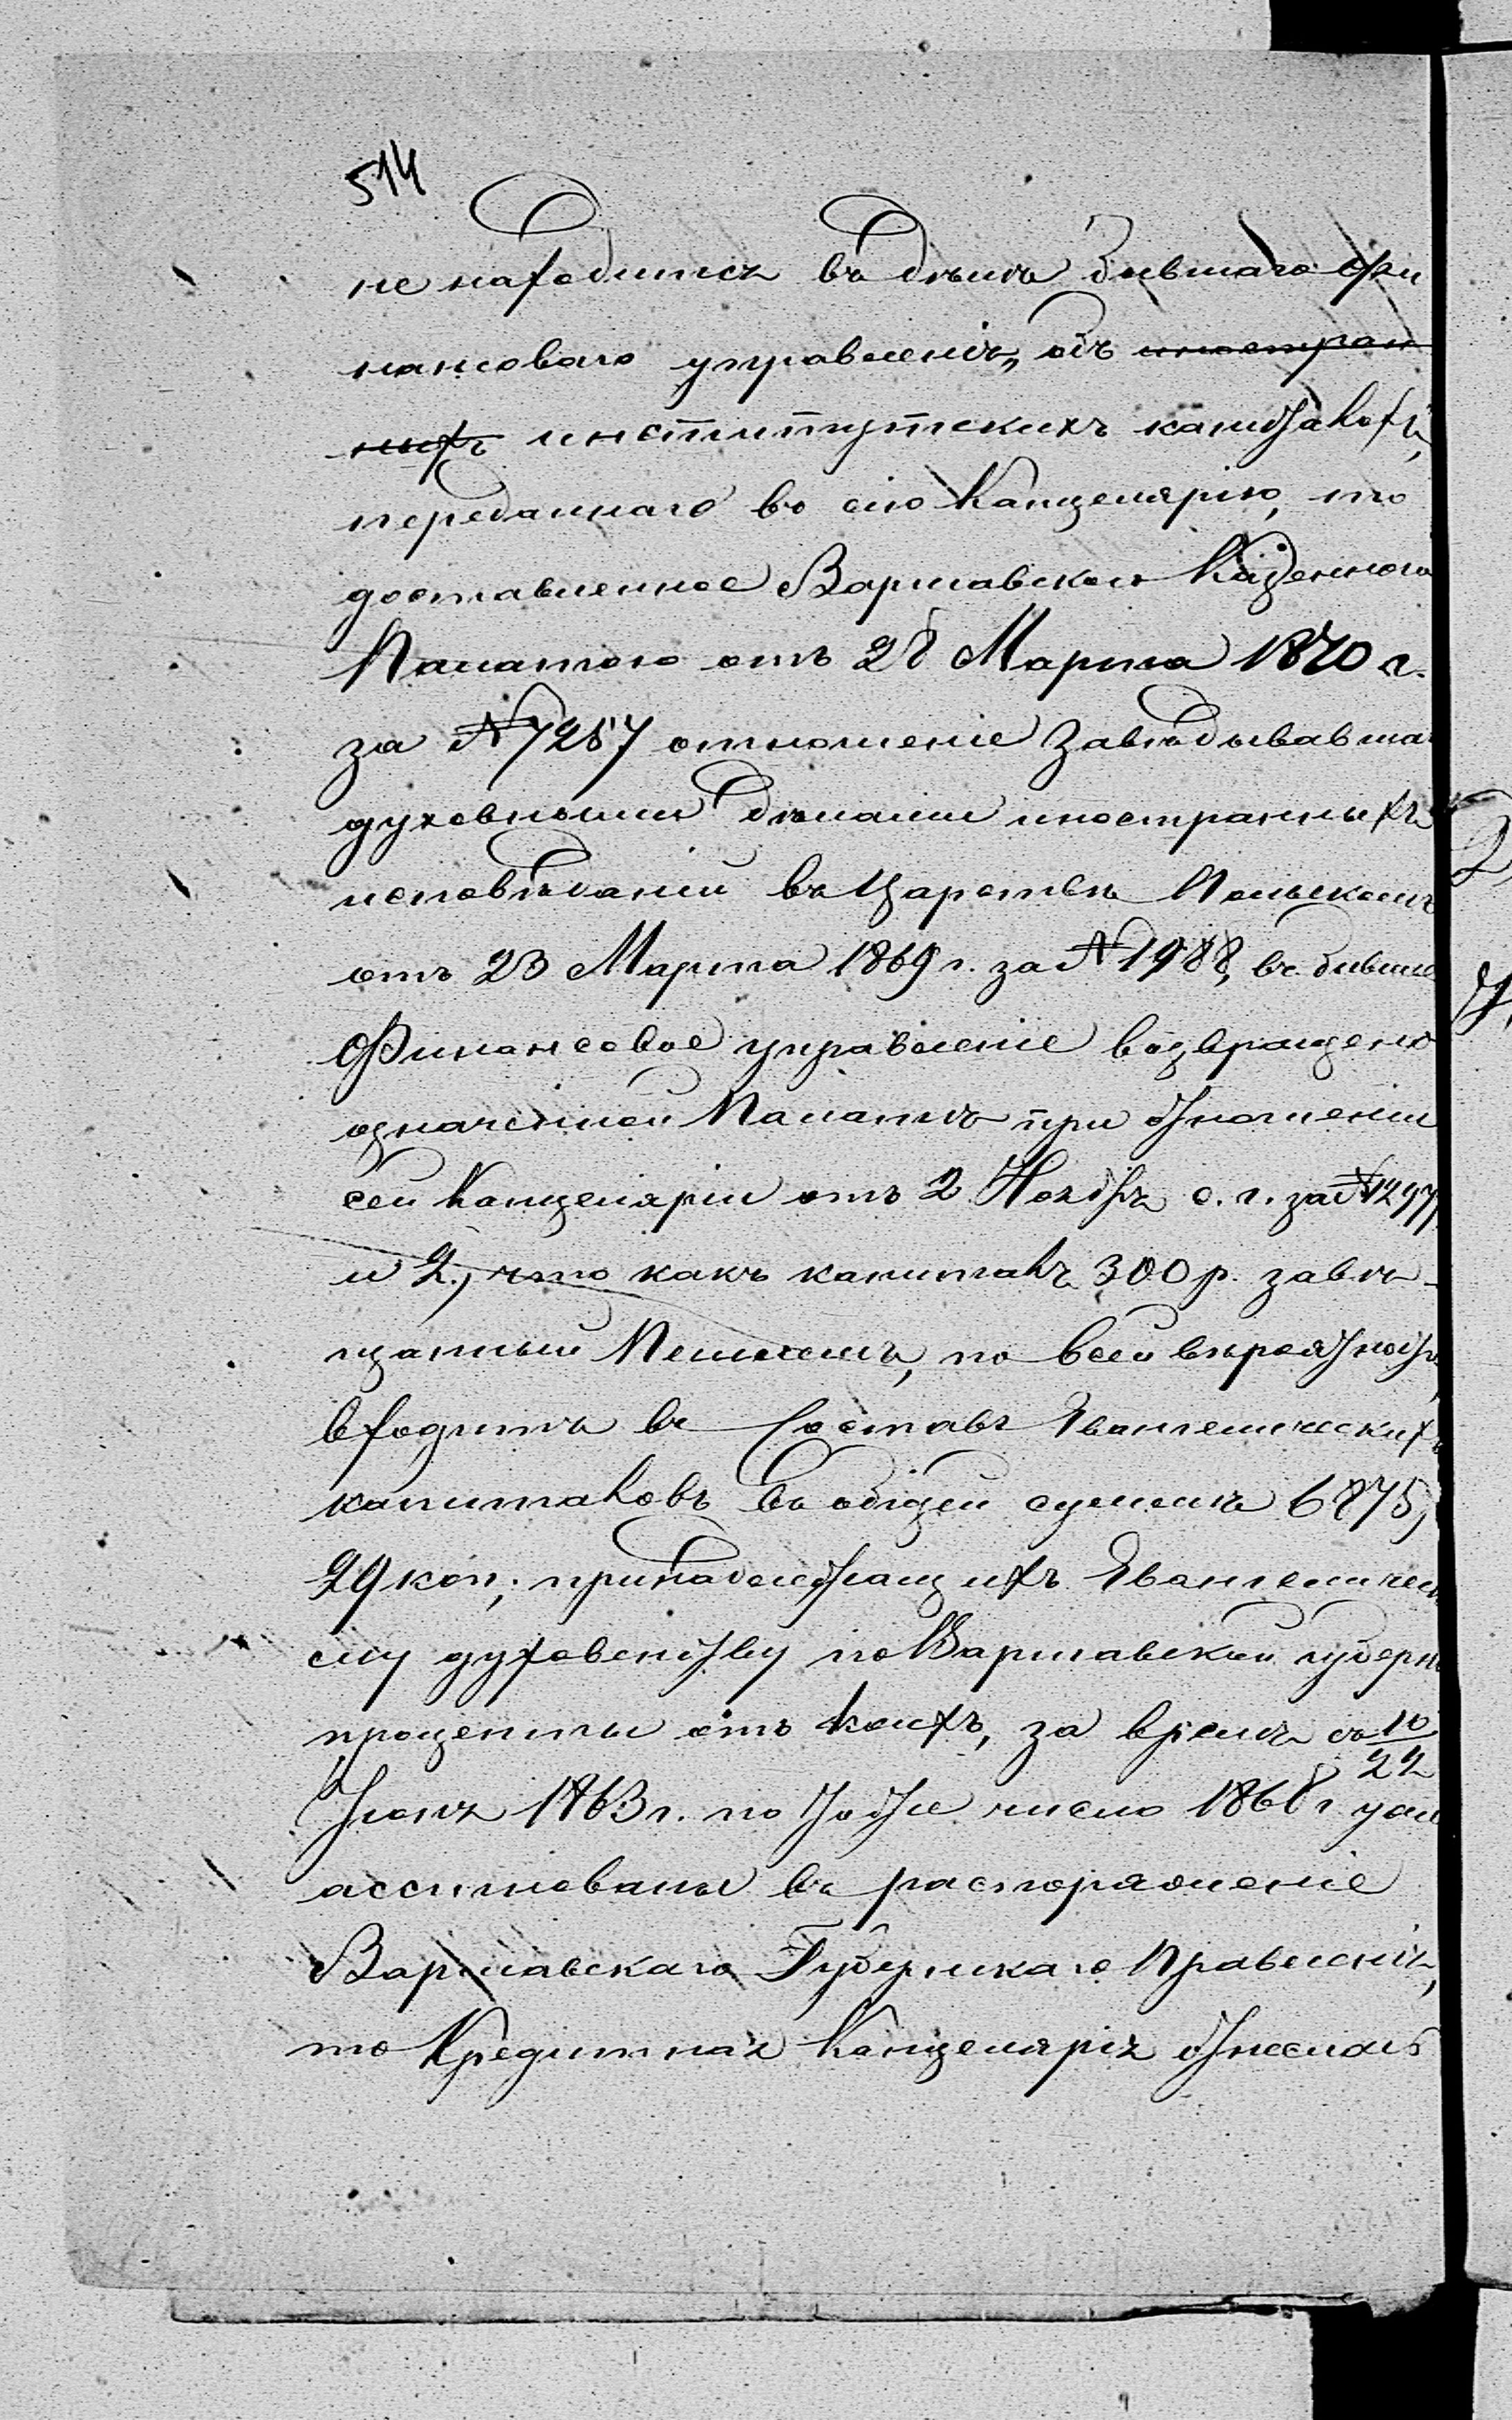 514
не находится въ дѣлѣ бывшаго Фи
нансоваго управленія, объ иностран
ныхъ институтскихъ капиталахъ,
переданнаго во сію Канцелярію, то
доставленное Варшавскою Казенною
Палатою отъ 28 Марта 1870 г.
за № 7257 отношеніе Завѣдывавша
духовными дѣлами иностранныхъ
исповѣданій въ Царствѣ Польскомъ
отъ 23 Марта 1869 г. за № 1988, въ бывшее
Финансовое управленіе возвращено
означенной Палатѣ при отношеніи
сей Канцеляріи отъ 2 Ноября с. г. за № 1297
и 2., что какъ капиталъ 300 р. завѣ-
щанный, по всей вѣроятности,
входитъ въ Составъ Евангелическихъ
капиталовъ въ общей суммѣ 6875,
29 коп; принадлежащихъ Евангеличес
ому духовенству по Варшавской губерн
проценты отъ коихъ, за время съ 10/22
Іюня 1863 г. по тоже число 1868 г. уже
ассигнованы въ распоряженіе
Варшавскаго Губернскаго Правленія,
то Кредитная Канцелярія отнеслась